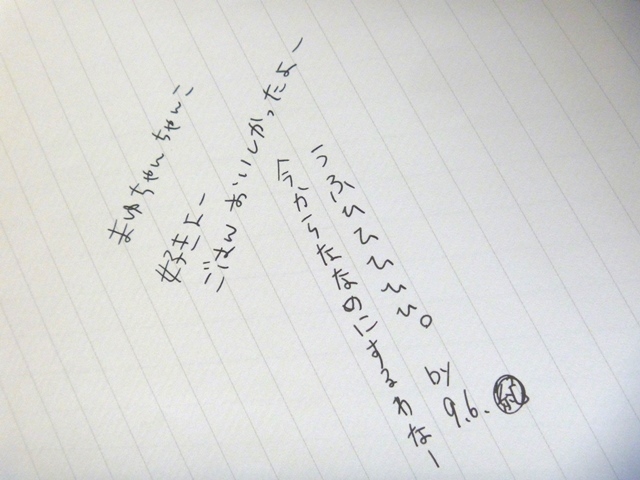 まゆちゃんちゃんこ
好きよー
ごはん おいしかったよー
うふひひひひひ。
今からたなのにするわなー
by
9.6.